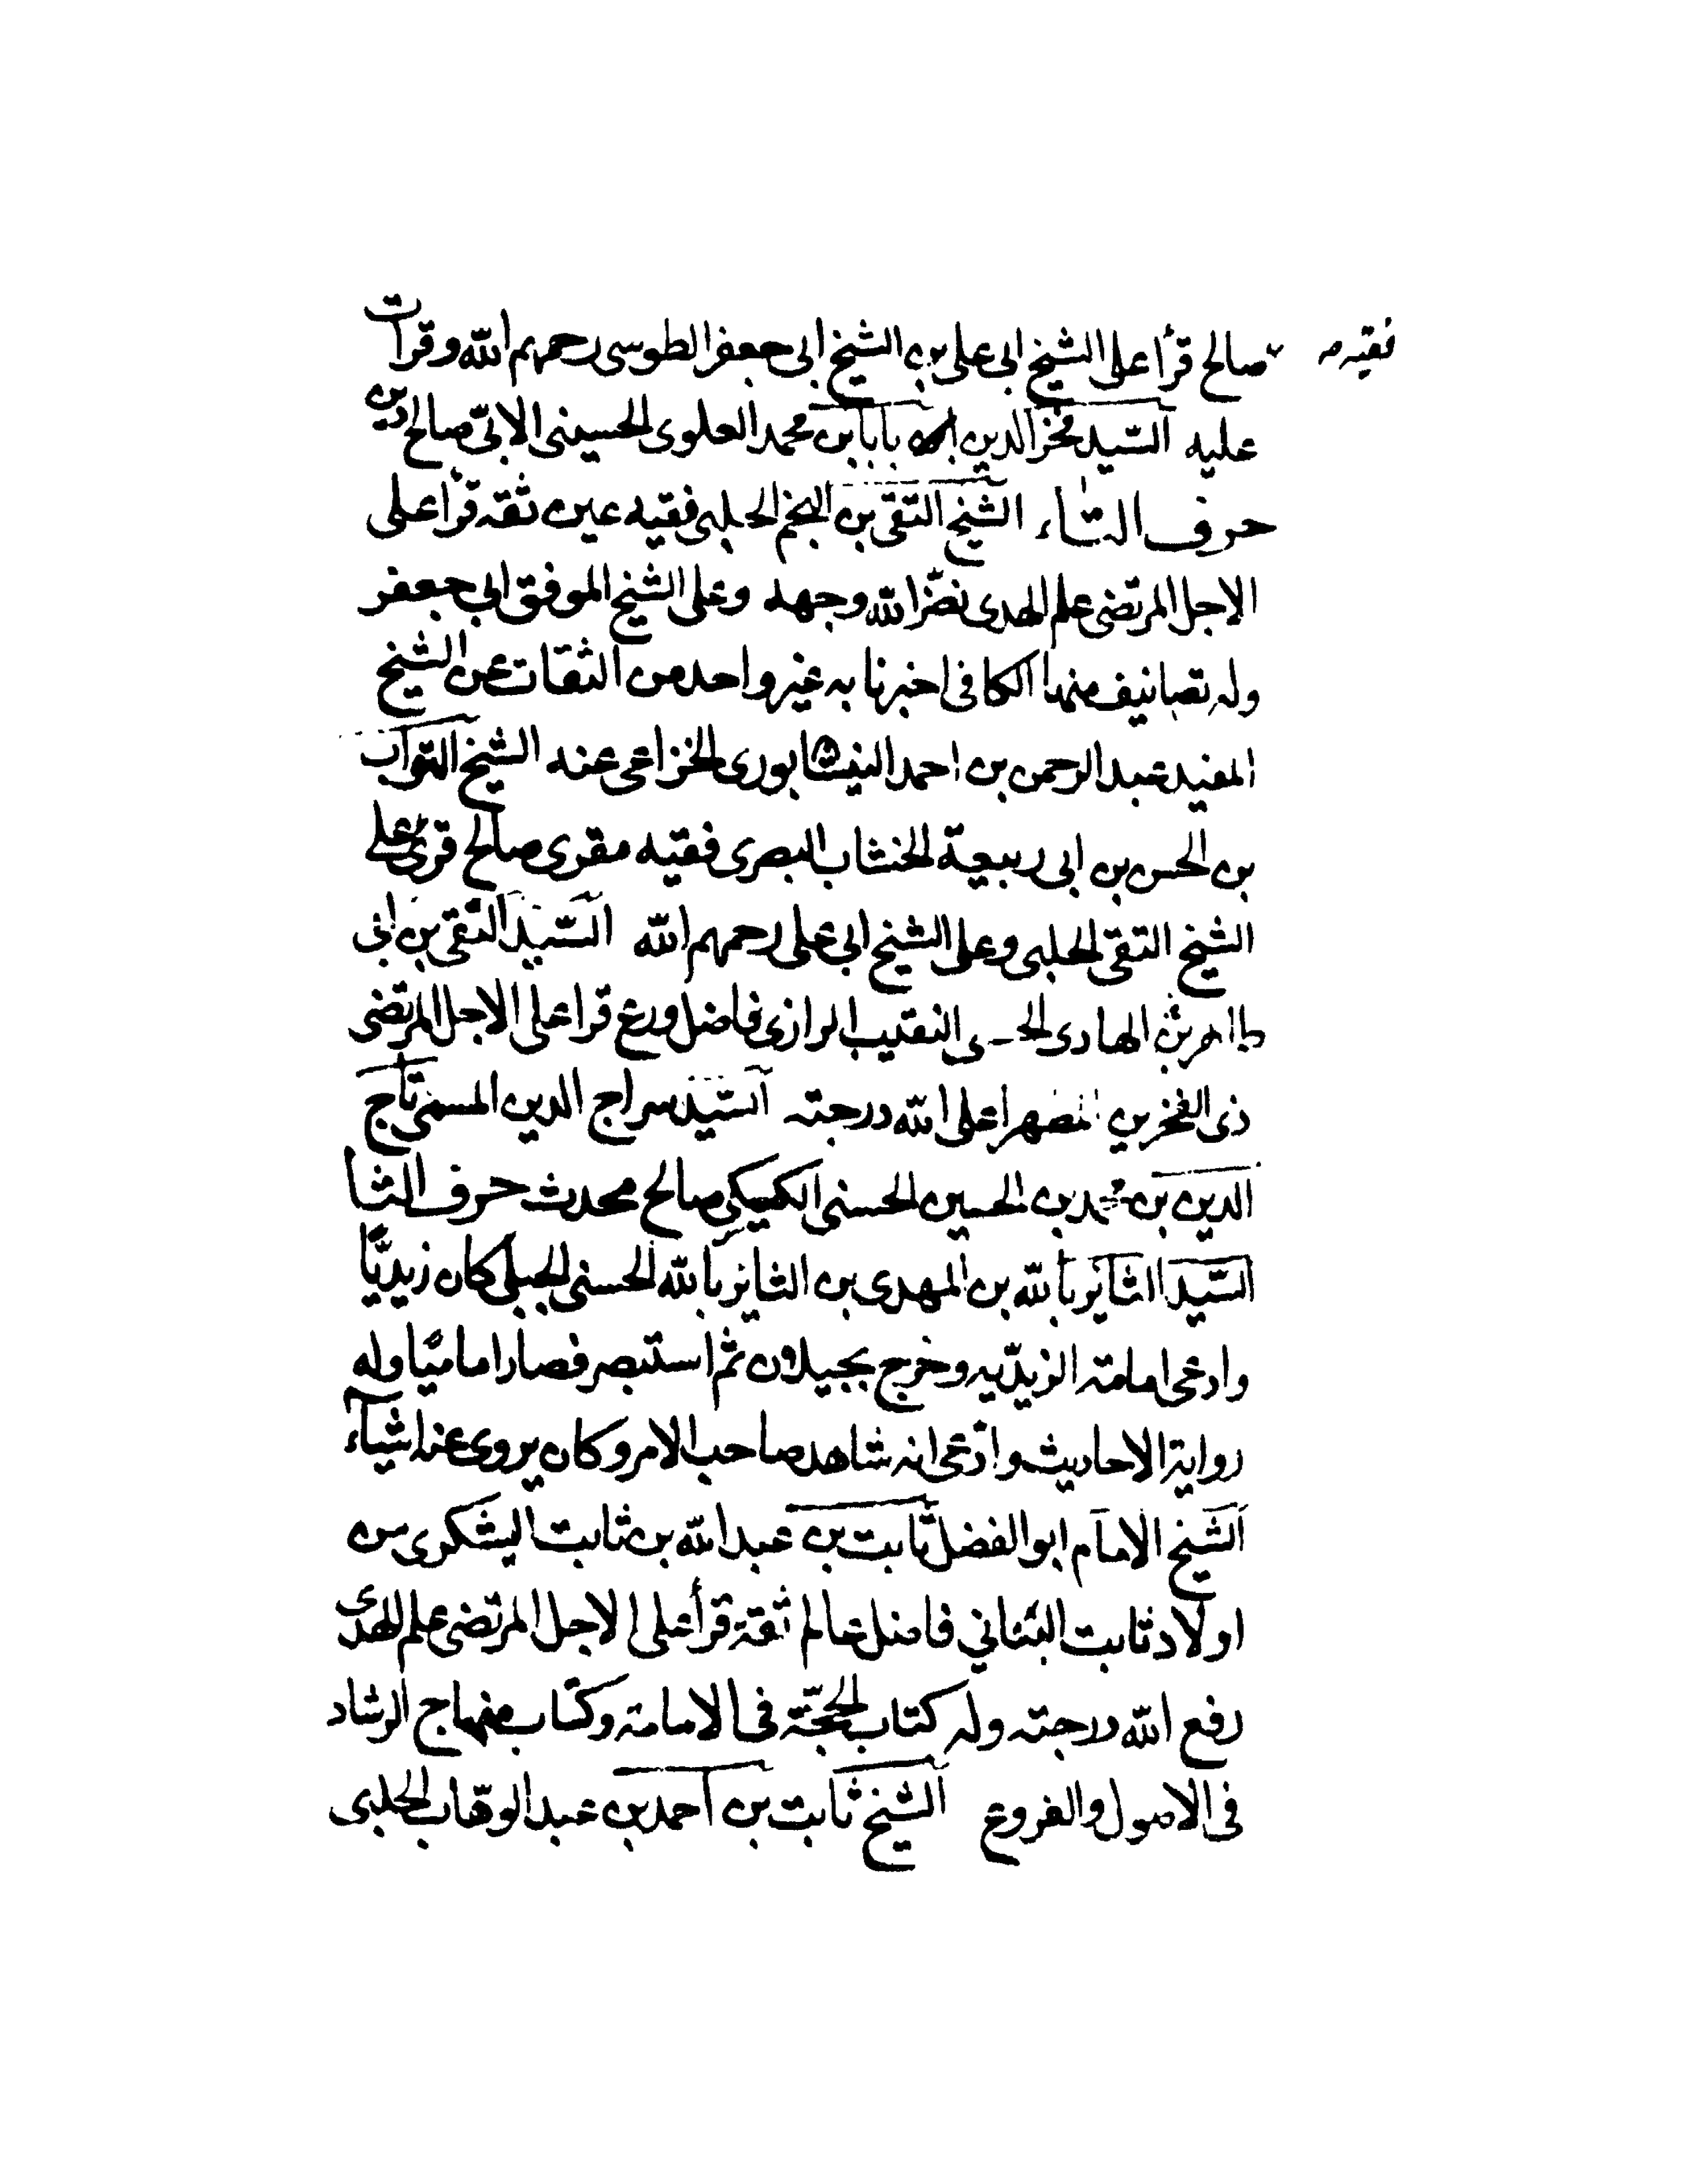 فقيه صالح قرأ على الشيخ ابى على بن الشيخ ابى جعفر الطوسى رحمهم الله وقرات
عليه السّيد فخر الدين بابا بن محمد العلوى الحسينى الابىّ صالح دين
حرف التاء الشيخ التقى بن النجم الحلبى فقيه عين ثقه قرأ على
الاجل المرتضى علم الهدى نضّر الله وجهه وعلى الشيخ الموفق ابى جعفر
وله تصانيف منها الكافى اخبرنا به غير واحد من الثقات عن الشيخ
المفيد عبد الرحمن بن احمد النيشابورى الخزاعى عنه الشيخ التواب
بن الحسن بن ابى ربيعة الخشاب البصرى فقيه مقرى صالح قرئ على
الشيخ التقى الحلبى وعلى الشيخ ابى على رحمهم الله السّيد التقى بن ابى
طاهر بن الهادى النقيب الرازى فاضل ورع قرا على الاجل المرتضى
ذى الفخرين المطهر اعلى الله درجته السّيد سراج الدين المسمى تاج
الدين بن محمد بن الحسين الحسنى الكيسكى صالح محدث حرف الثا
السّيد الثاير بالله بن المهدى بن الثاير بالله الحسنى الجيلى كان زيديًّا
وادعى امامة الزيديّه وخرج بجيلان ثم استبصر فصار اماميًّا وله
رواية الاحاديث وادّعى انه شاهد صاحب الامر وكان يروى عنه اشياء
الشيخ الامام ابو الفضل ثابت بن عبد الله بن ثابت اليشكرى من
اولاد ثابت البنانى فاضل عالم ثقة قرأ على الاجل المرتضى علم الهدى
رفع الله درجته وله كتاب الحجّة فى الامامة وكتاب منهاج الرشاد
فى الاصول والفروع الشيخ ثابت بن احمد بن عبد الوهّاب الحلبى